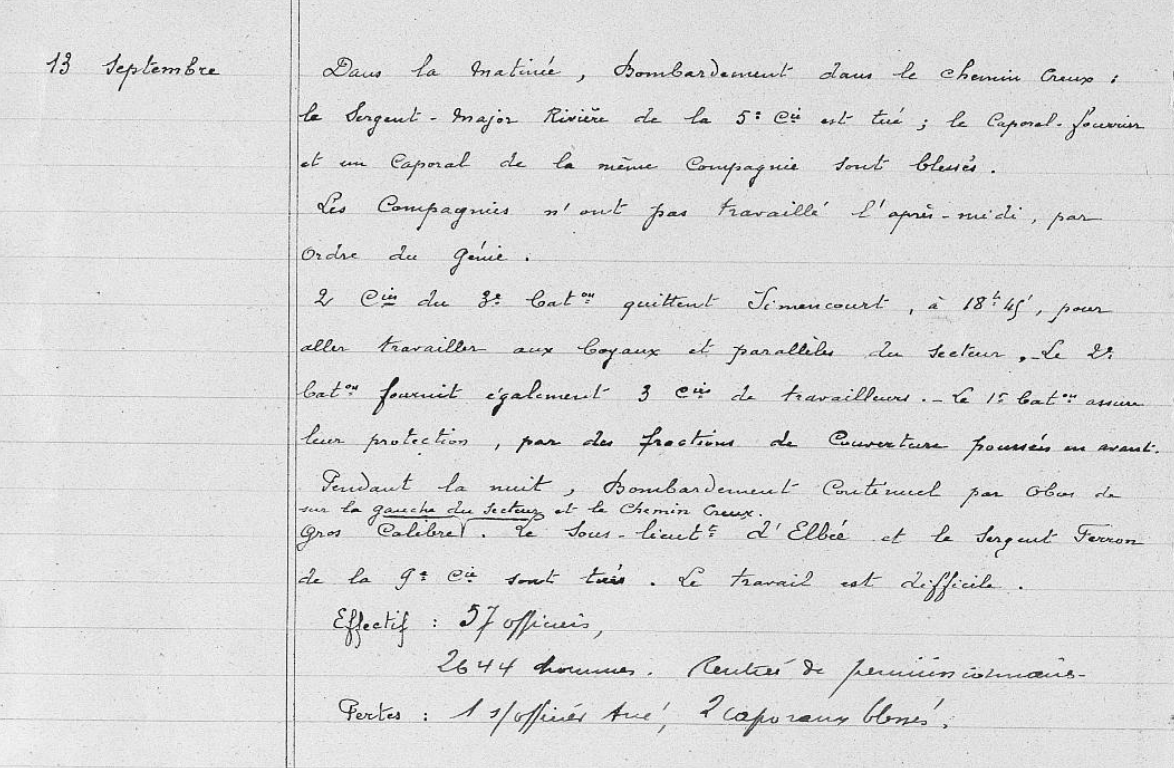 13 Septembre
Dans la Matinée, Bombardement dans le Chemin Creux :
le Sergent-Major Rivière de la 5e Cie est tué ; le Caporal-fourrier
et un Caporal de la même Compagnie sont blessés.
Les Compagnies n'ont pas travaillé l'après-midi, par
Ordre du Génie.
2 Cies du 3e Baton quittent Simencourt, à 18h45', pour
aller travailler aux boyaux et parallèles du secteur. - Le 2e
Baton fournit également 3 Cies de travailleurs. - Le 1er Baton assure
leur protection, par des fractions de Couverture poussées en avant.
Pendant la nuit, Bombardement Continuel par Obus de
sur la gauche du Secteur et le Chemin Creux.
Gros Calibre. Le Sous-lieutt d'Elbée et le Sergent Ferron
de la 9e Cie sont tués. Le travail est difficile.
Effectif : 57 officiers,
2644 hommes. Rentrés de permissionnaires
Pertes : 1 s/officier tué, 2 caporaux blessés.